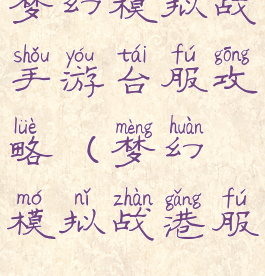 梦幻模拟战
shǒu yóu tái fú gōng
手游台服攻
lüè mèng huàn
略（梦幻
mó nǐ zhàn gǎng fú
模拟战港服